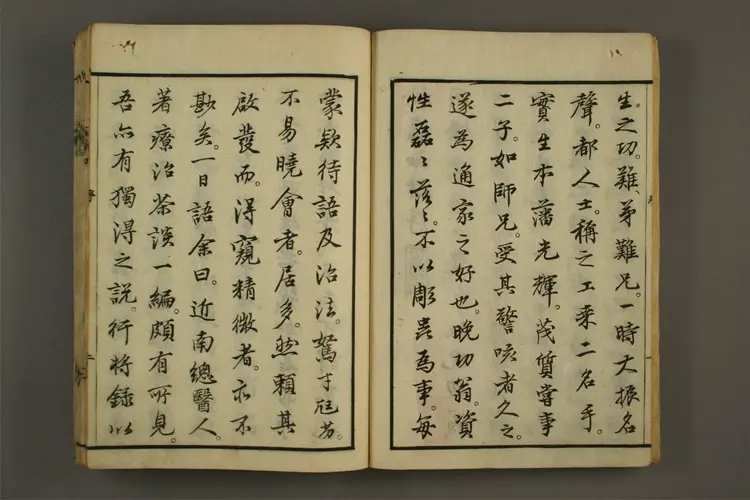 生之功。難弟難兄。一時大振名
聲。都人士。稱之工來二名手。
實生本藩光輝。茂質嘗事
二子。如師兄。受其警咳者久之。
遂為通家之好也。晚功翁。資
性磊々落々。不以彫蟲為事。每
蒙款待語及治法。駑才尫劣。
不易曉會者。居多。然賴其
啟發而。得窺精微者。亦不
尠矣。一日語余曰。近南總醫人。
著療治茶談一編。頗有所見。
吾亦有獨得之說。行將錄以
序
二